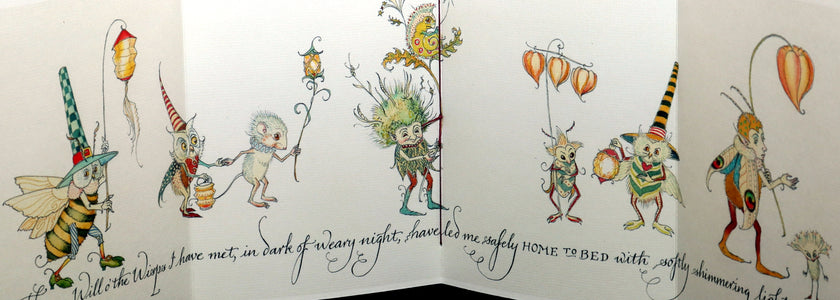 The Will o' the Wisps I have met, in dark of weary night, have led me safely HOME TO BED with softly shimmering light